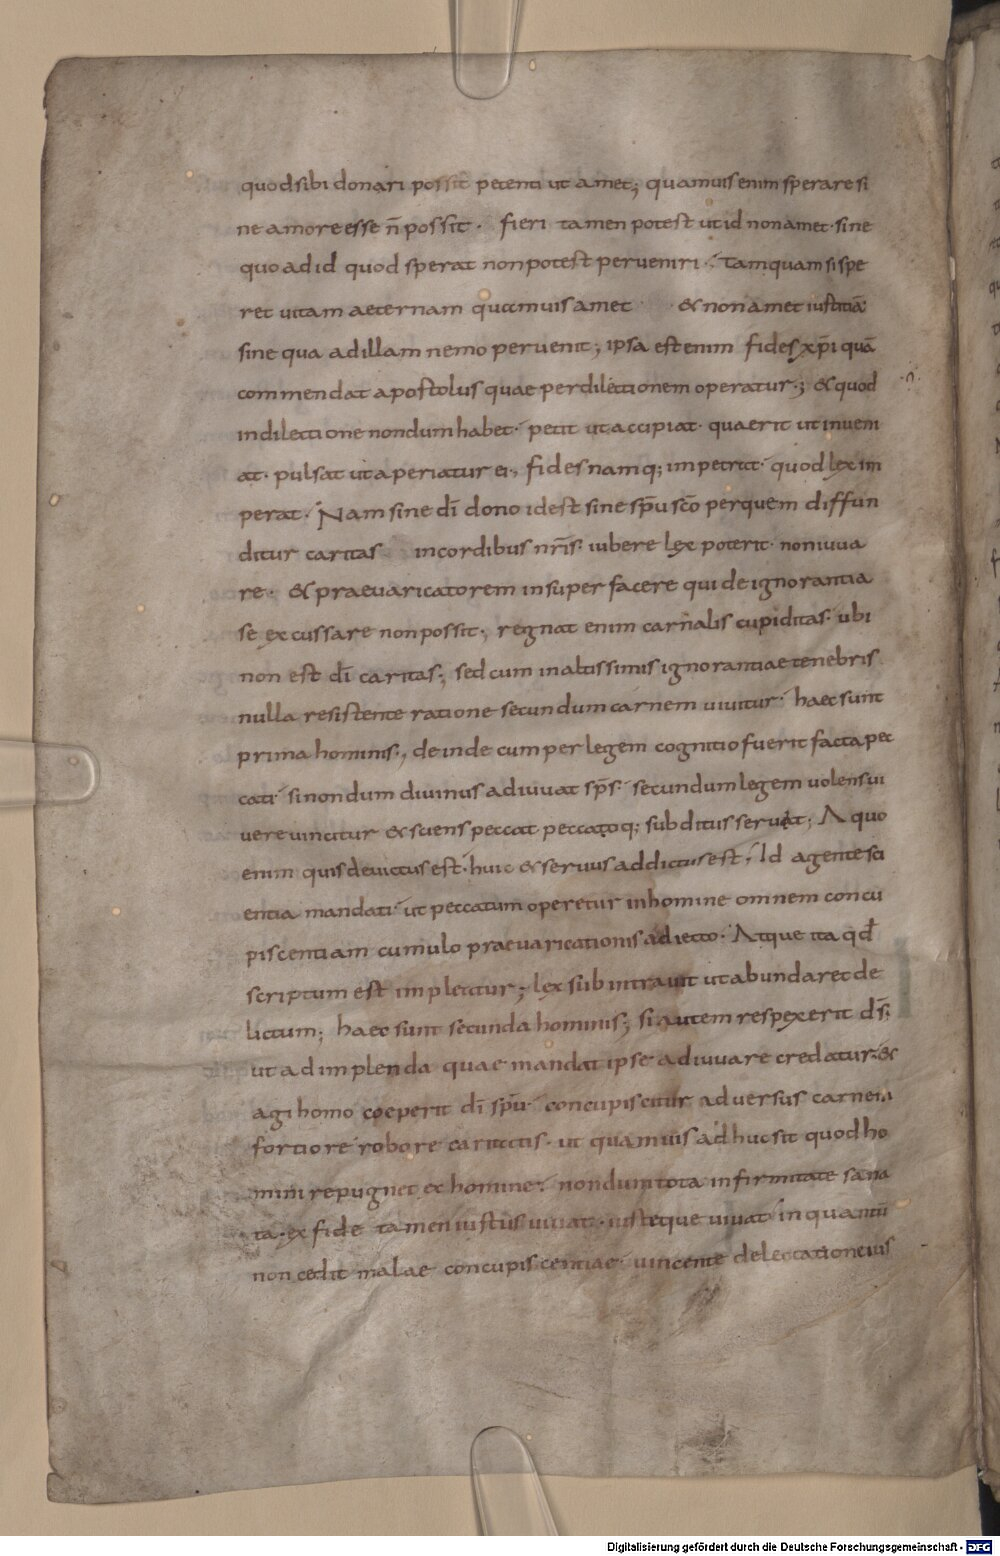 quod sibi donari possit petenti ut amet; quamuis enim sperare si
ne amore esse n̄ possit · fieri tamen potest ut id non amet · sine
quo ad id quod sperat non potest perueniri · Tamquam si spe
ret uitam aeternam quamuis amet & non amet iustitiā
sine qua ad illam nemo peruenit; ipsa est enim fides xp̄i quā
commendat apostolus quae per dilectionem operatur; & quod
in dilectione nondum habet · petit ut accipiat · quaerit ut inueni
at · pulsat ut aperiatur ei; fides namq; impetrat · quod lex im
perat · Nam sine dī dono id est sine sp̄u sc̄o per quem diffun
ditur caritas in cordibus nr̄is · iubere lex poterit · non iuua
re · & praeuaricatorem insuper facere qui de ignorantia
se excussare non possit; regnat enim carnalis cupiditas · ubi
non est dī caritas; sed cum in altissimis ignorantiae tenebris
nulla resistente ratione secundum carnem uiuitur · haec sunt
prima hominis; deinde cum per legem cognitio fuerit facta pec
cati · si nondum diuinus adiuuat sp̄s · secundum legem uolens ui
uere uincitur & sciens peccat peccatoq; subditus seruit; A quo
enim quis deuictus est · huic & seruus addictus est; Id agente sci
entia mandati · ut peccatum operetur in homine omnem concu
piscentiam cumulo praeuaricationis adiecto · Atque ita qđ
scriptum est impleatur; lex subintrauit ut abundaret de
lictum; haec sunt secunda hominis; si autem respexerit d̄s ·
ut ad implenda quae mandat ipse adiuuare credatur · &
agi homo coeperit dī sp̄u · concupiscitur aduersus carnem
fortiore robore caritatis · ut quamuis adhuc sit quod ho
mini repugnet ex homine · nondum tota infirmitate sana
ta · ex fide tamen iustus uiuat · iusteque uiuat in quantū
non cedit malae concupiscentiae · uincente delectatione ius
Digitalisierung gefördert durch die Deutsche Forschungsgemeinschaft - DFG